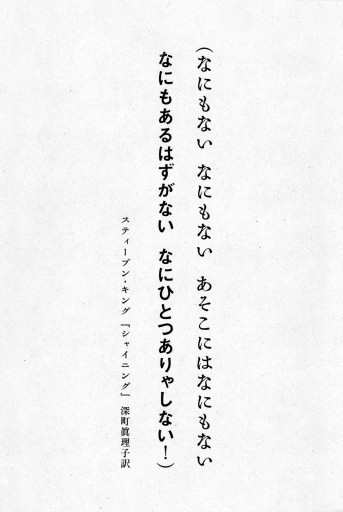 (なにもない なにもない あそこにはなにもない
なにもあるはずがない なにひとつありゃしない!)
スティーブン・キング『シャイニング』深町眞理子訳